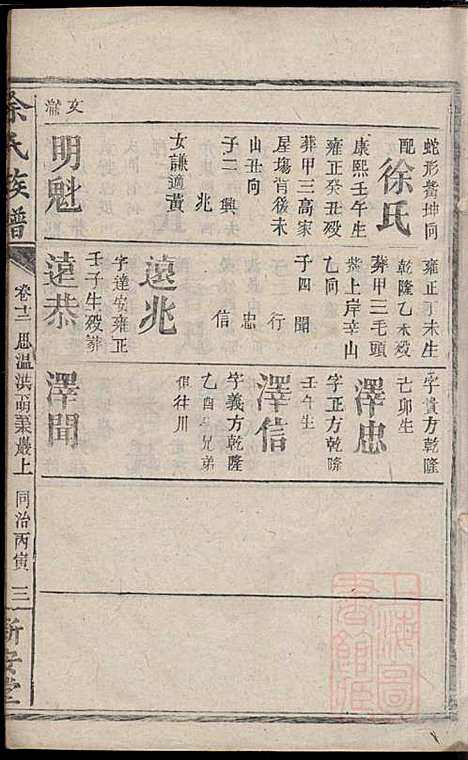 蛇形蟞坤向
配徐氏
康熙壬午生
雍正癸丑殁
葬甲三高家
星塲背後未
山丑向
子二 興
兆
女謙適黃
文㵯
明魁
雍正丁未生
乾隆乙未殁
葬甲三毛頭
紫上岸辛山
乙向
子四 聞
行
忠
信
遠兆
字達安雍正
壬子生殁葬
遠恭
字貴方乾隆
己卯生
澤忠
字正方乾隆
壬午生
澤信
字義方乾隆
乙酉生兄弟
俱往川
澤聞
徐氏族譜
卷十二 思溫洪萌業嚴上 同治丙寅 三
新安堂
上海圖書館藏